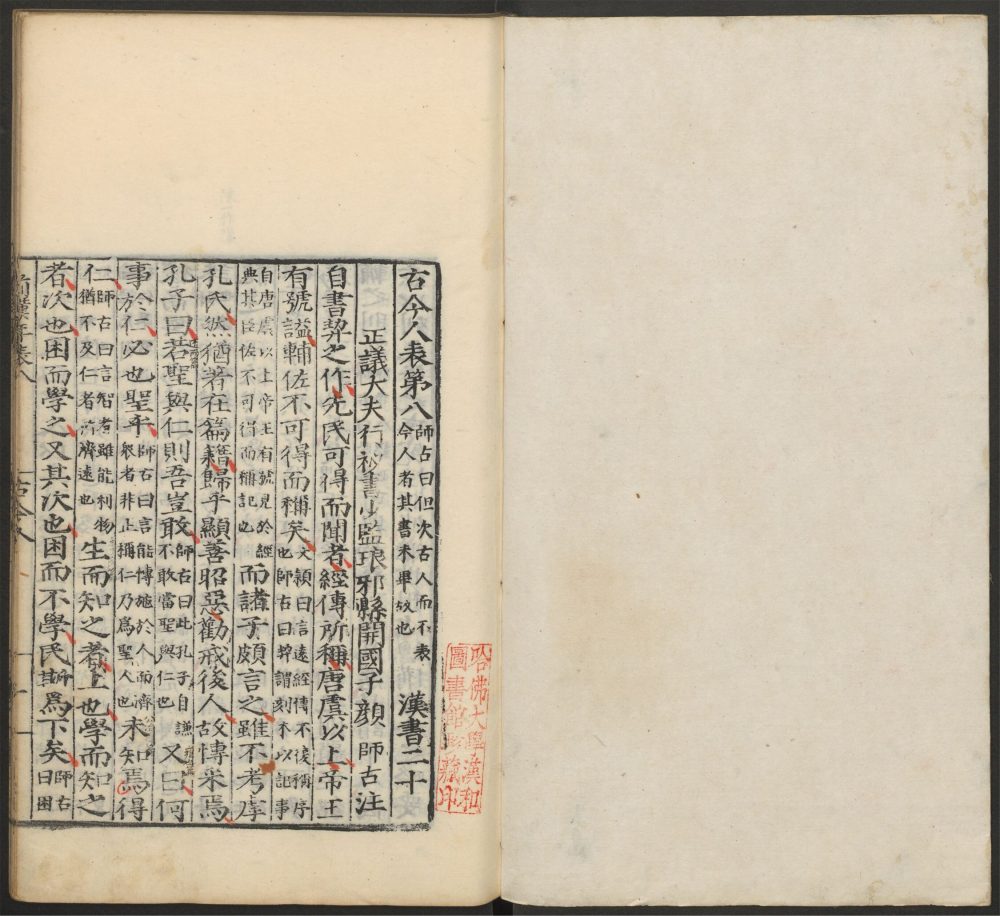 古今人表第八師古曰但次古人而不表今人者其書未畢故也 漢書二十
正議大夫行祕書少監琅邪縣開國子顏 師古注
自書契之作先民可得而聞者經傳所稱唐虞以上帝王
有號謚輔佐不可得而稱矣文穎曰言遠經傳不復稱序也師古曰契謂刻木以記事
自唐虞以上帝王有號見於經典其臣佐不可得而稱記也而諸子頗言之雖不考虖
孔氏然猶著在篇籍歸乎顯善昭惡勸戒後人故博采焉
孔子曰若聖與仁則吾豈敢師古曰此孔子自謙不敢當聖與仁也又曰何
事於仁必也聖乎師古曰言能博施於人而濟衆者非止稱仁乃爲聖人也未知焉得
仁師古曰言智者雖能利物猶不及仁者所濟遠也生而知之者上也學而知之
者次也困而學之又其次也困而不學民斯爲下矣師古曰困
前漢書表八
古今人
一
哈佛大學漢和
圖書館珍藏印